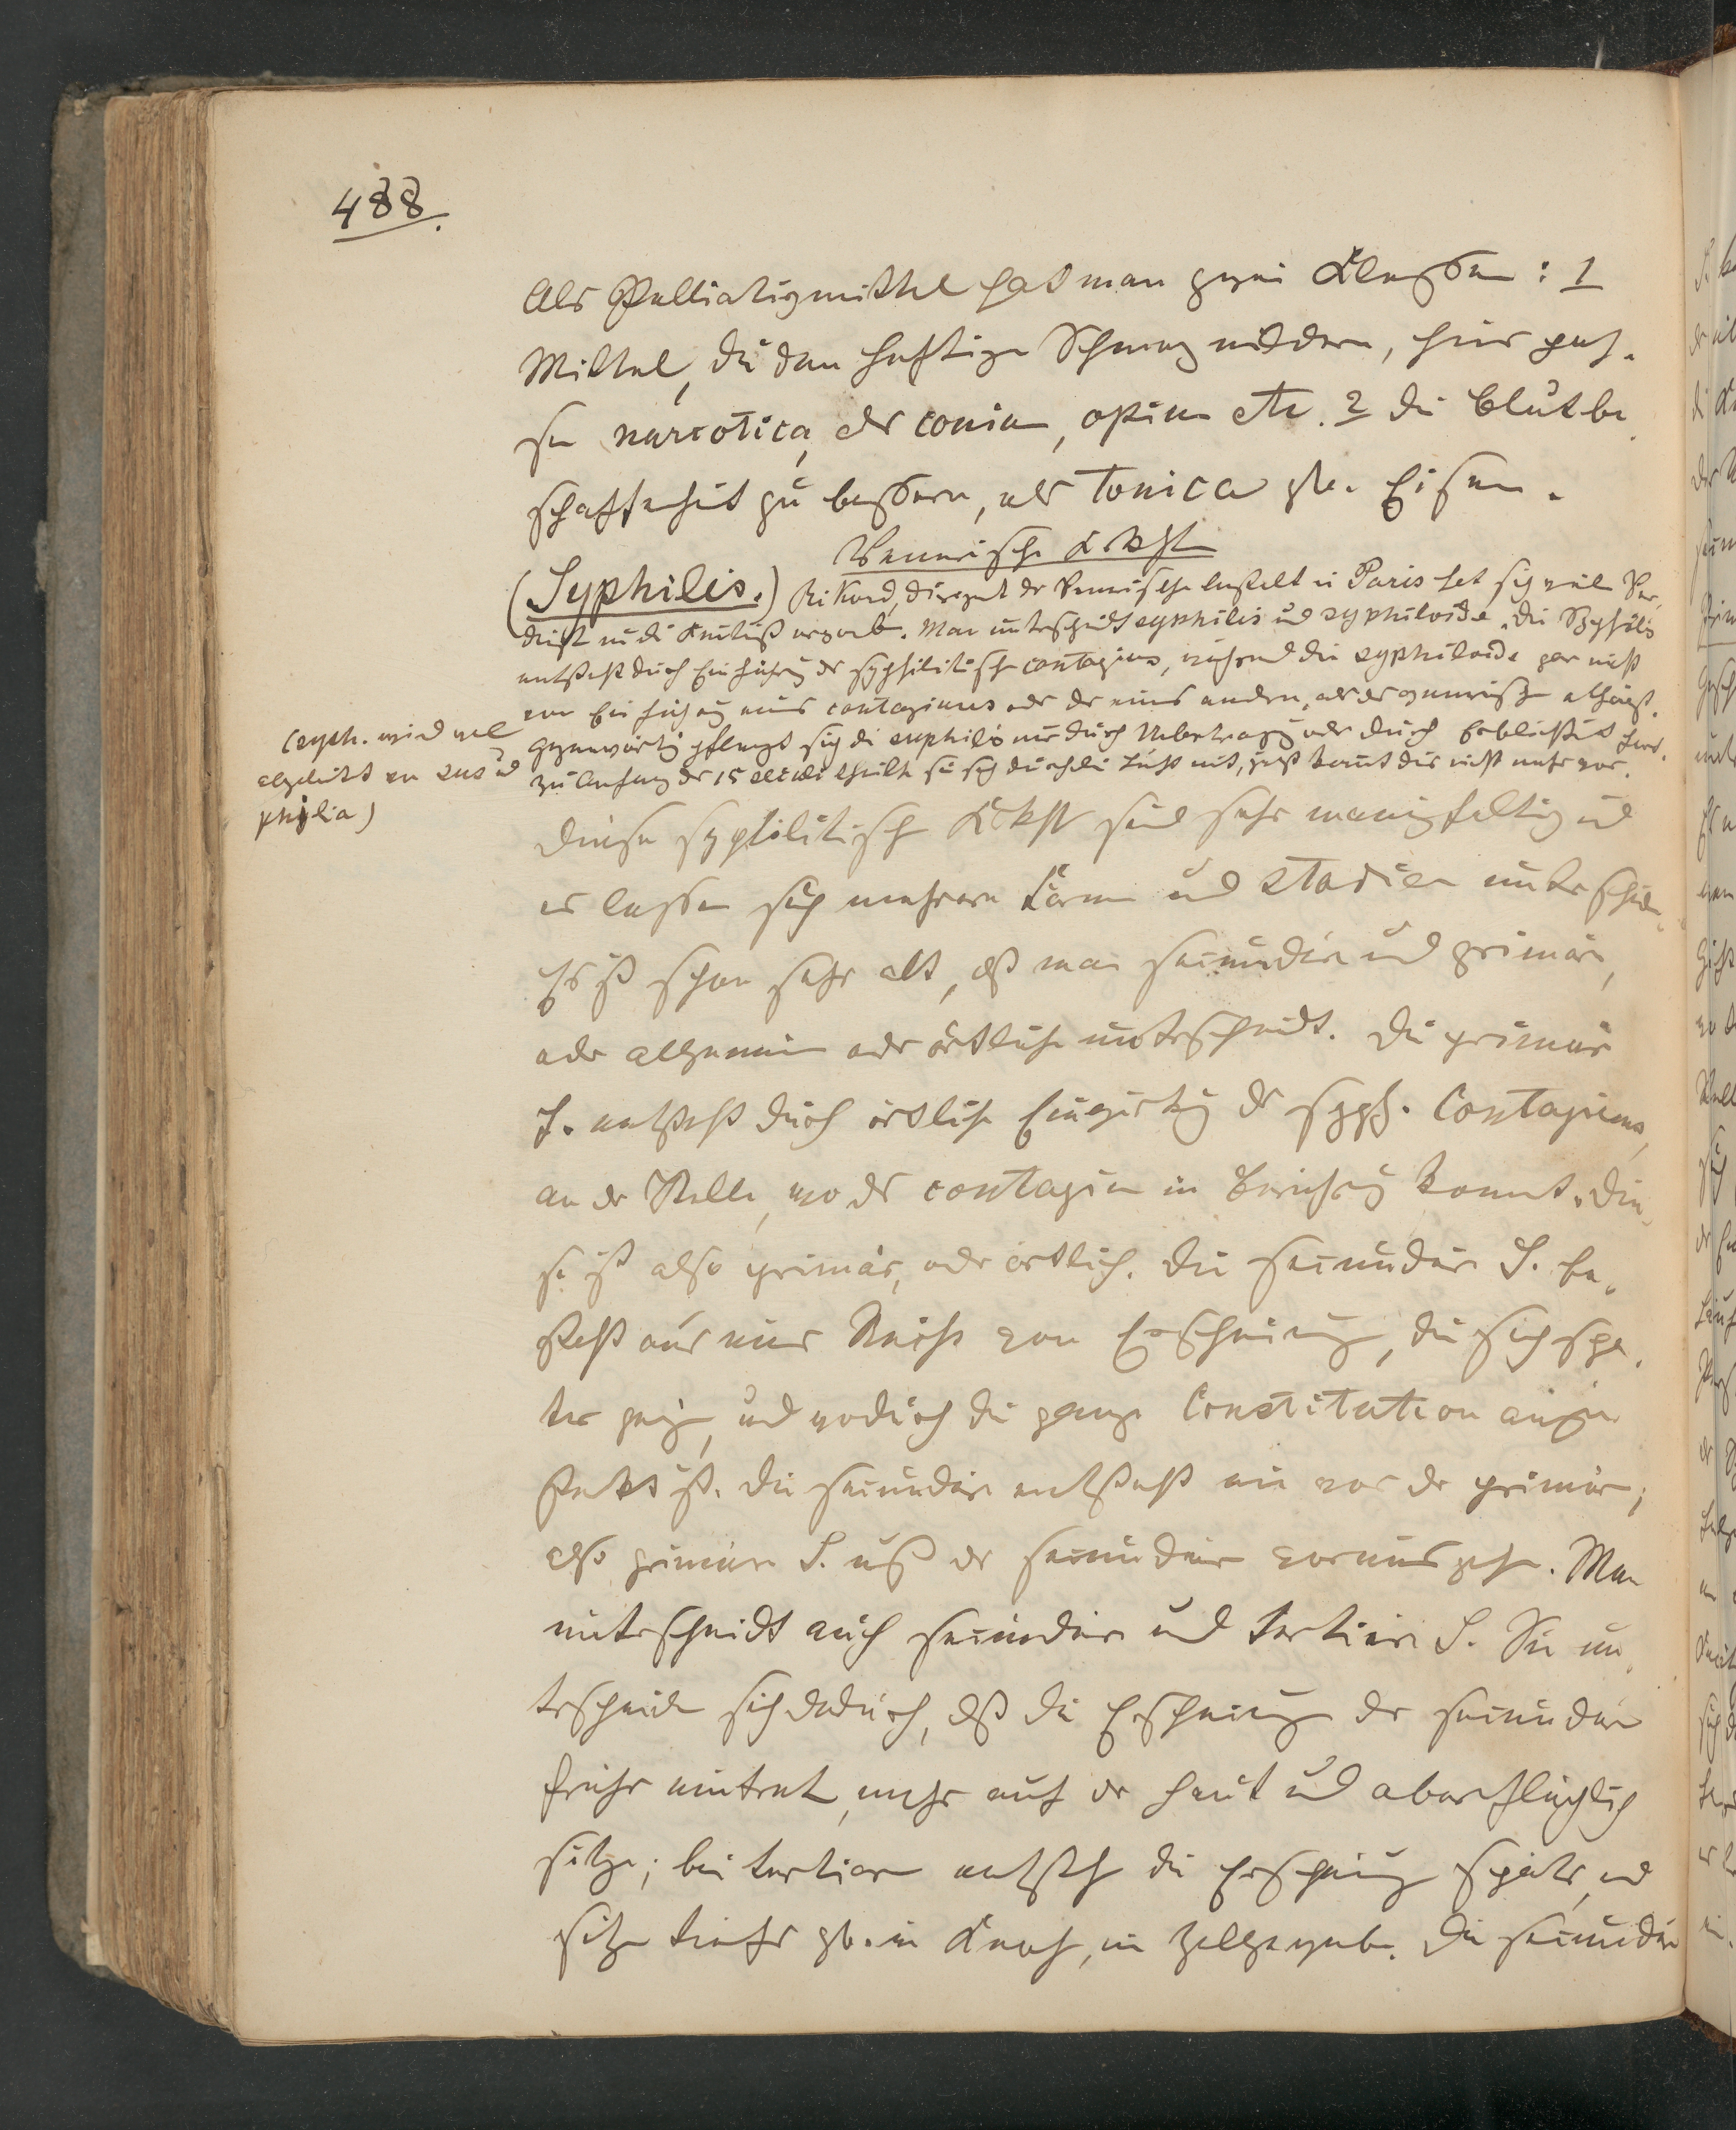 488.
Als Palliativmittel hat man zwei Klassen: 1
Mittel, die den heftigen Schmerz mildern, hier pas-
sen narcotica, als conium, opium etc. 2 die Blutbe-
schaffenheit zu bessern, als Tonica zb. Eisen.
Venerische Krkhten
(Syphilis.) Rikord, Dirigent der Venerischen Anstalt in Paris hat sich viel Ver-
dienst um die Kentniß erworben. Man unterscheidt syphilis und syphiloide. Die Syphilis
entsteht durch Einführung der syphilitischen contagiums, während die syphiloide gar nicht
von Einführung eines contagiums oder der eines andern, als der generischen abhängt.
Gegenwärtig pflanzt sich die syphilis nur durch Uebertragung oder durch Erblichkeit fort.
zu Anfang des 15 theilte sie sich durch die Luft mit, jetzt komt dies nicht mehr vor.
(syph. wird wol
abgeleitet von sus und
philia)
Diese syphilitischen Krkhten sind sehr manigfaltig und
es lassen sich mehrere Formen und Stadien unterscheiden.
Es ist schon sehr alt, dß man secundäre und primäre,
oder allgemeine oder örtliche unterscheidt. Die primäre
S. entsteht durch örtliche Einwirkung des syph. Contagiums,
an der Stelle, wo das contagium in Berührung kommt. Die-
se ist also primär, oder örtlich. Die secundäre S. be-
steht aus einer Reihe von Erscheinungen, die sich spä-
ter zeigen, und wodurch die ganze Constitution ange-
steckt ist. Die secundäre entsteht nie vor der primären;
also primäre S. muß der secundären vorausgehen. Man
unterscheidt auch secundäre und tertiäre S. Sie un-
terscheiden sich dadurch, dß die Erscheinungen der secundären
früher eintreten, mehr auf der Haut und oberflächlich
sitzen; bei tertiären entstehen die Erscheinungen später, und
sitzen tiefer zb. in Knochen, im Zellgewebe. Die secundäre